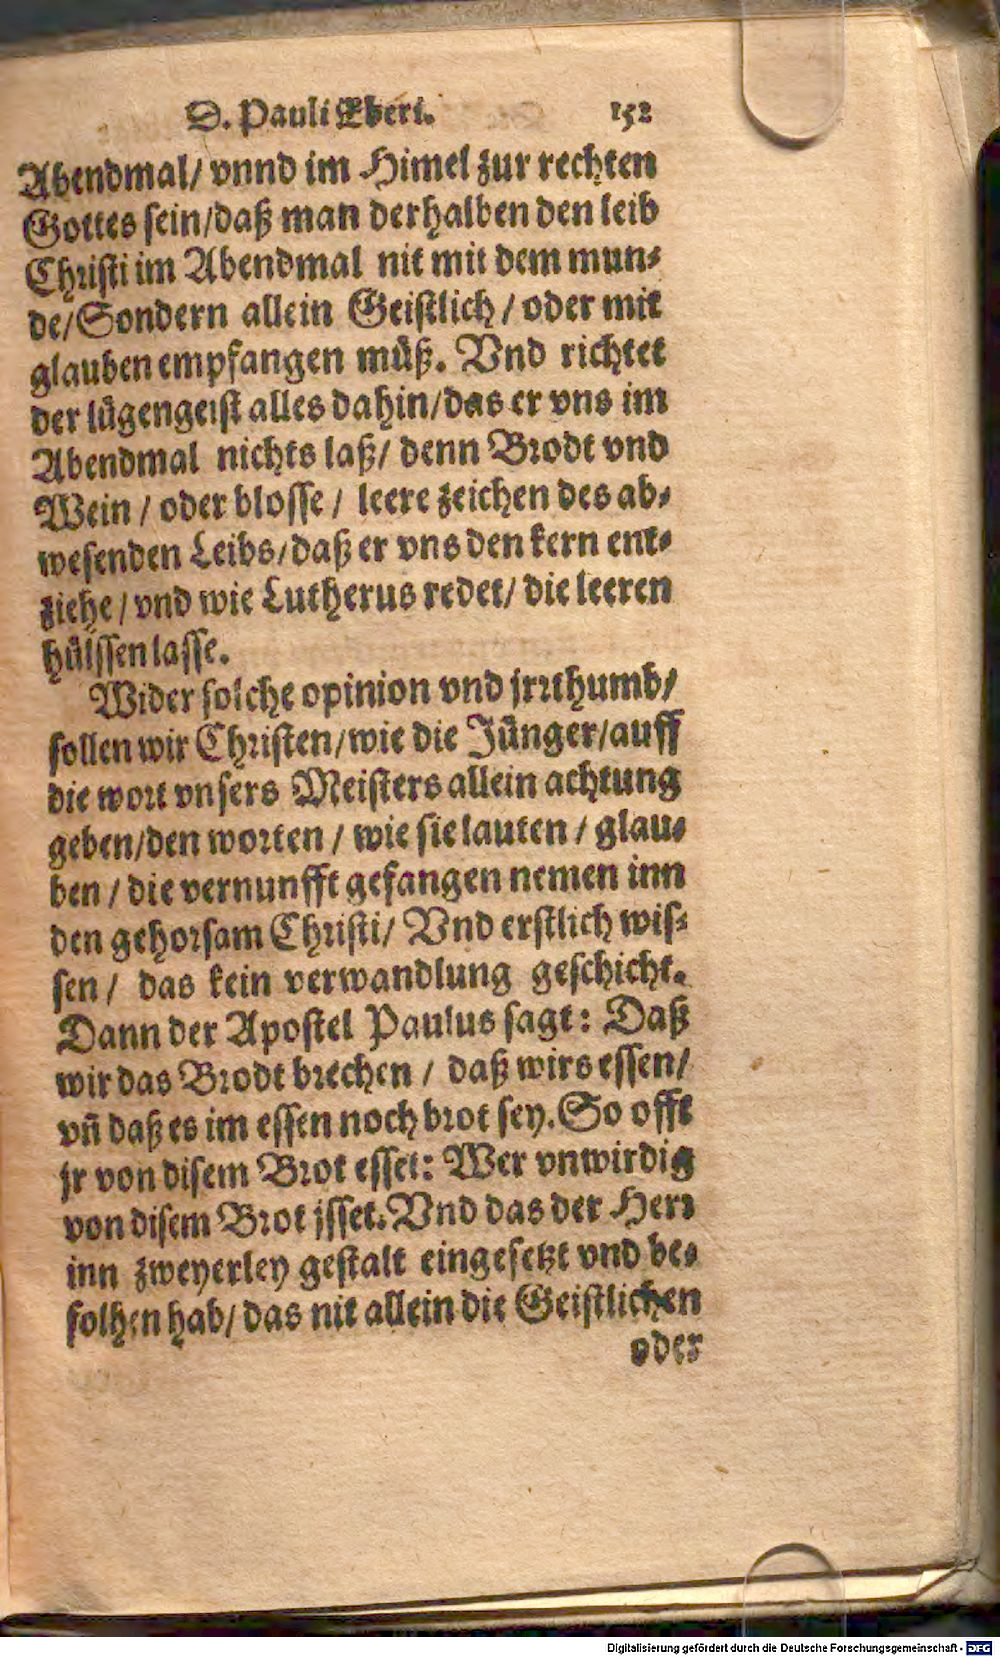 D. Pauli Eberi. 152
Abendmal/ vnnd im Himel zur rechten
Gottes sein/daß man derhalben den leib
Christi im Abendmal nit mit dem mun-
de/Sondern allein Geistlich / oder mit
glauben empfangen müß. Vnd richtet
der lügengeist alles dahin/das er vns im
Abendmal nichts laß/ denn Brodt vnd
Wein / oder blosse / leere zeichen des ab-
wesenden Leibs/daß er vns den kern ent-
ziehe / vnd wie Lutherus redet/ die leeren
hülssen lasse.
Wider solche opinion vnd jrrthumb/
sollen wir Christen/wie die Jünger/auff
die wort vnsers Meisters allein achtung
geben/den worten / wie sie lauten / glau-
ben / die vernunfft gefangen nemen inn
den gehorsam Christi/ Vnd erstlich wis-
sen / das kein verwandlung geschicht.
Dann der Apostel Paulus sagt: Daß
wir das Brodt brechen / daß wirs essen/
vñ daß es im essen noch brot sey. So offt
jr von disem Brot esset: Wer vnwirdig
von disem Brot jsset. Vnd das der Herr
inn zweyerley gestalt eingesetzt vnd be-
folhen hab/ das nit allein die Geistlichen
oder
Digitalisierung gefördert durch die Deutsche Forschungsgemeinschaft - DFG